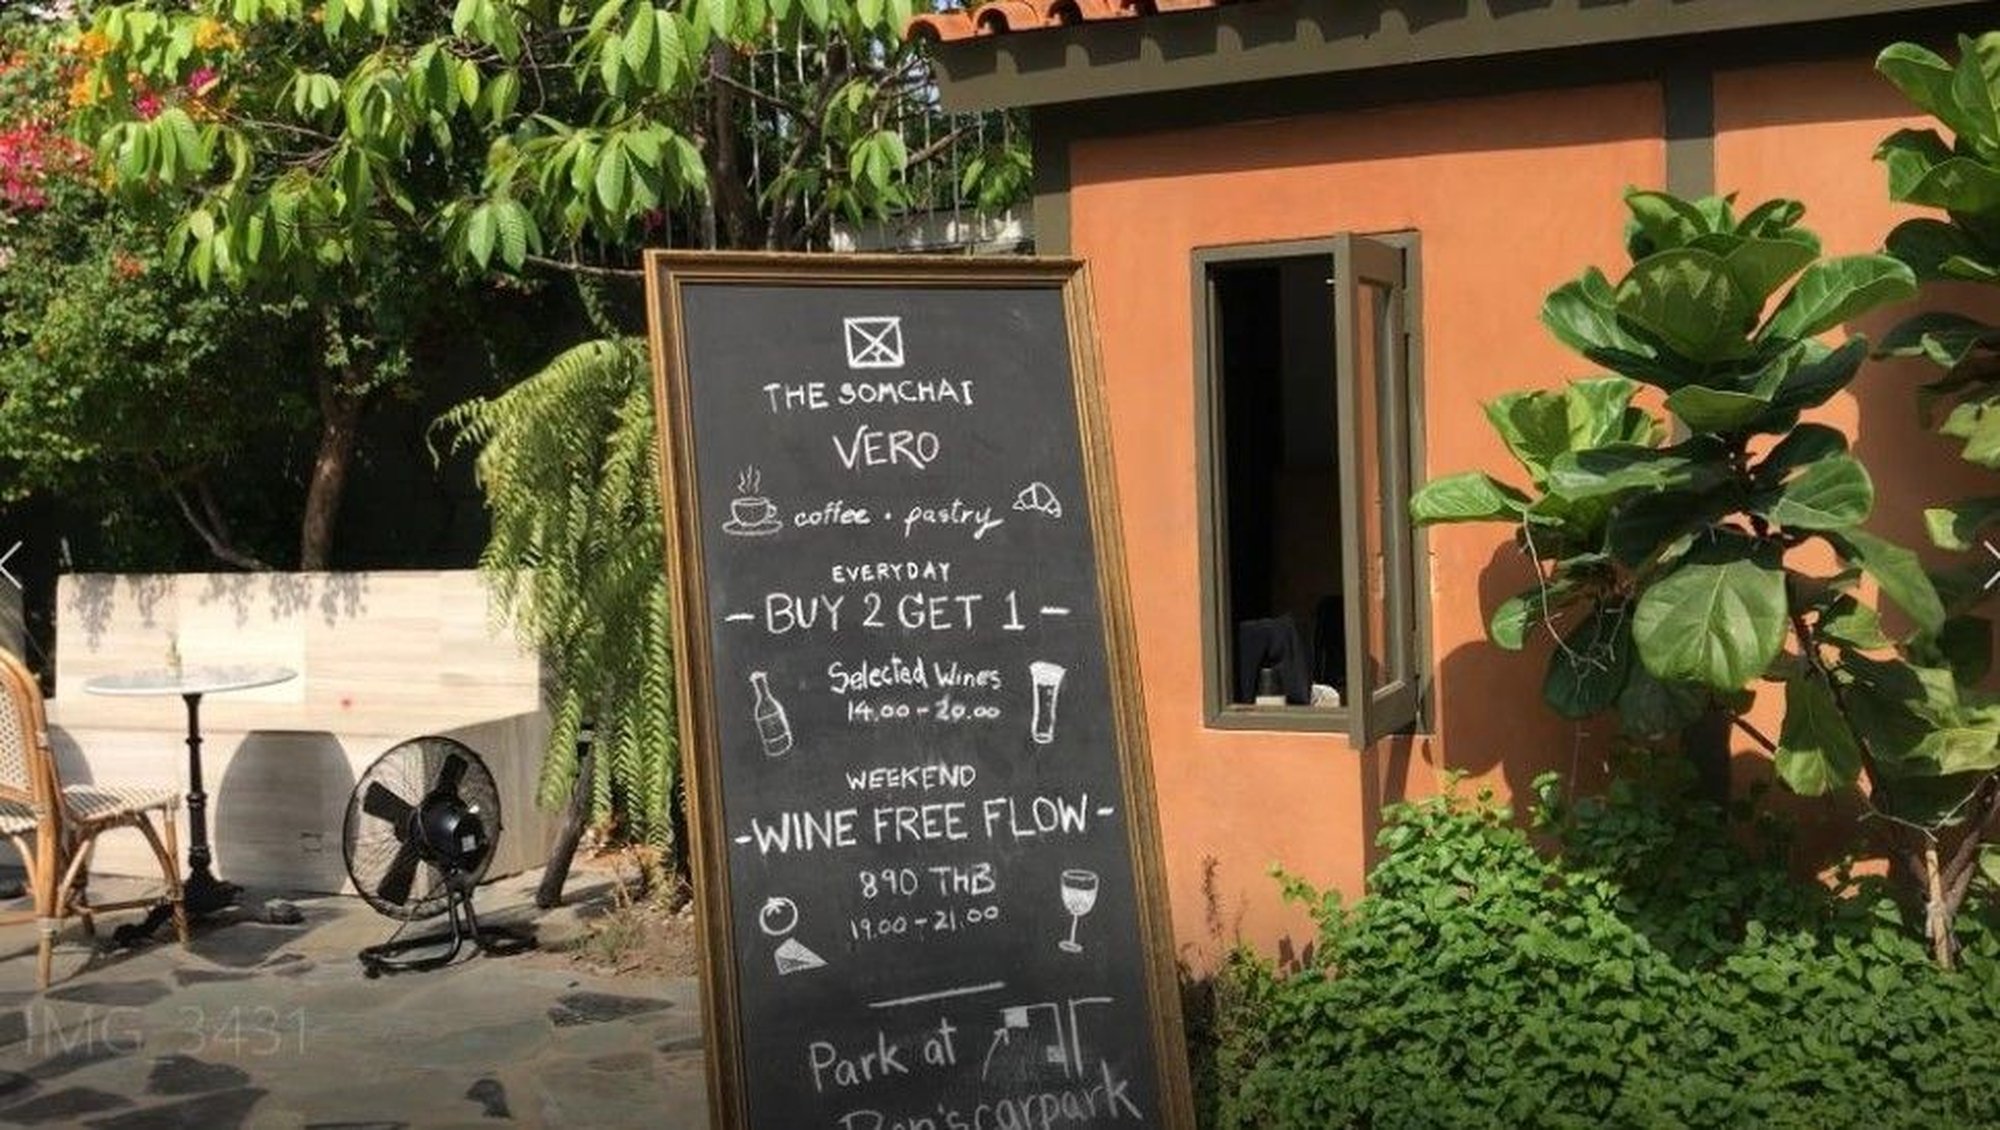 THE SOMCHAI
VERO
coffee · pastry
EVERYDAY
- BUY 2 GET 1 -
Selected Wines
14.00 - 20.00
WEEKEND
- WINE FREE FLOW -
890 THB
19.00 - 21.00
Park at
carpark
IMG_3431